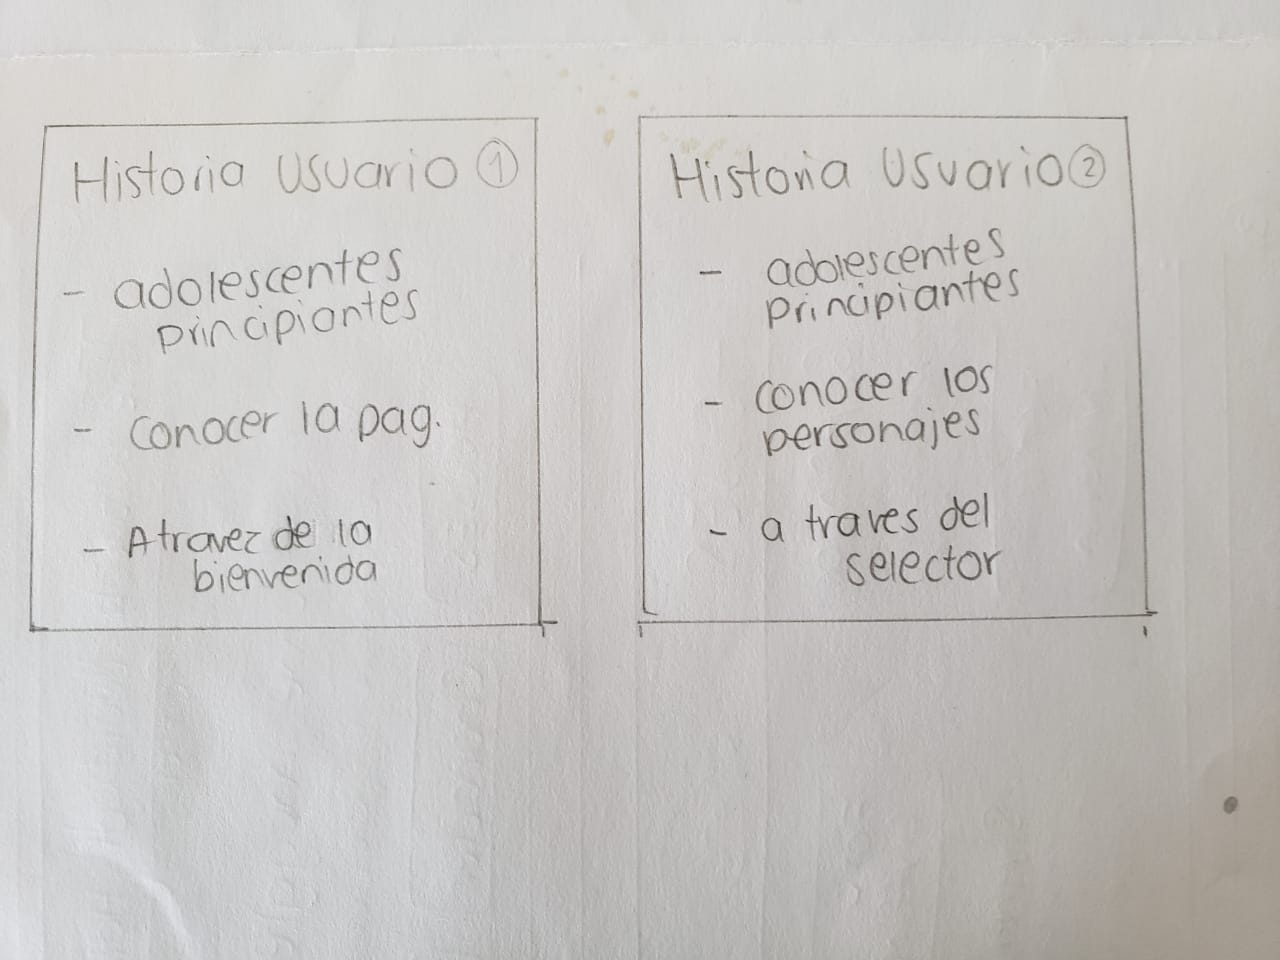 Historia Usuario ①
- adolescentes
principiantes
- conocer la pag.
- Atravez de la
bienvenida
Historia Usuario ②
- adolescentes
principiantes
- conocer los
personajes
- a traves del
selector